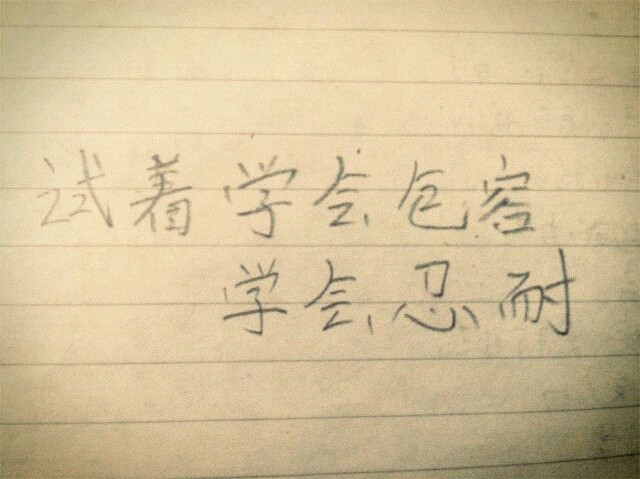 试着学会包容
学会忍耐